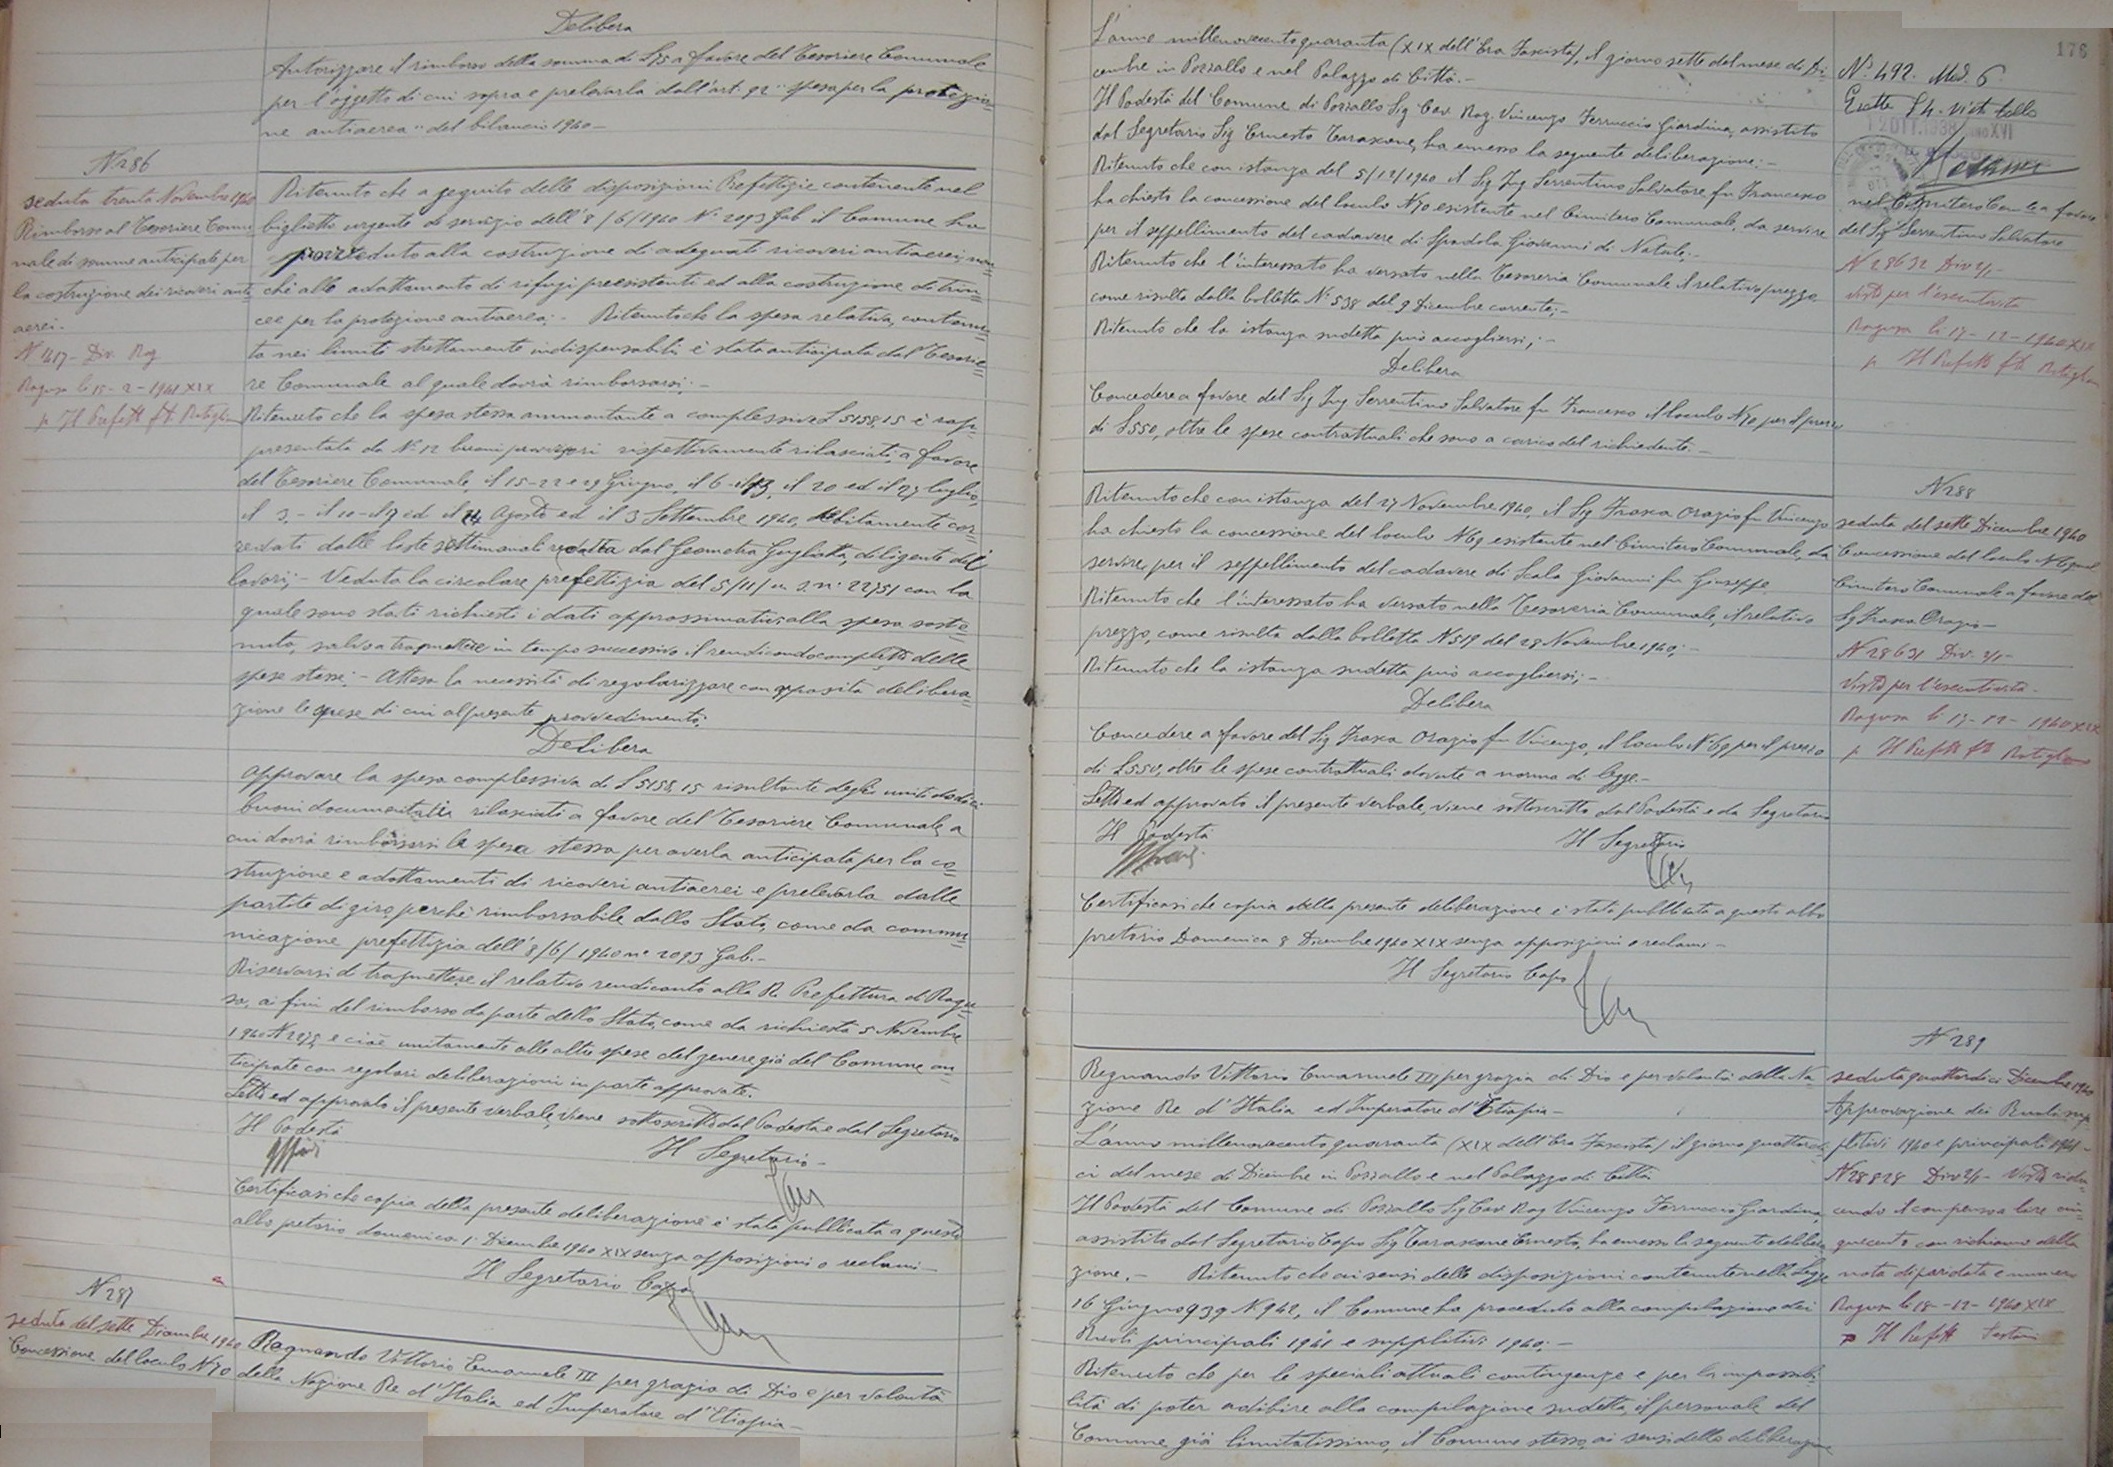 Delibera
Autorizzare il rimborso della somma di L 75 a favore del Tesoriere Comunale
per l'oggetto di cui sopra e prelevarla dall'art. 92 "spesa per la protezio=
ne antiaerea" del bilancio 1940 -
N 286
seduta trenta Novembre 1940
Rimborso al Tesoriere Comu
nale di somme anticipate per
la costruzione dei ricoveri anti
aerei.
N 417 - Div. Rag
Ragusa li 15 - 2 - 1941 XIX
p Il Prefetto ft
Ritenuto che a seguito delle disposizioni Prefettizie contenente nel
biglietto urgente di servizio dell'8/6/1940 N. 2093 Gab il Comune ha
provveduto alla costruzione di adeguati ricoveri antiaerei, non=
chè allo adattamento di rifugi preesistenti ed alla costruzione di trin=
cee per la protezione antiaerea; - Ritenuto che la spesa relativa, contenu=
ta nei limiti strettamente indispensabili è stata anticipata dal Tesorie=
re Comunale al quale dovrà rimborsarsi; -
Ritenuto che la spesa stessa ammontante a complessive L 5158,15 è rap=
presentata da N. 12 buoni provvisori rispettivamente rilasciati, a favore
del Tesoriere Comunale, il 15-22 e 29 Giugno, il 6- il 13, il 20 ed il 27 luglio,
il 3. - il 10 - il 17 ed il 24 Agosto ed il 3 Settembre 1940, debitamente cor=
redati dalle liste settimanali redatte dal Geometra Gugliotta, dirigente dei
lavori; - Veduta la circolare prefettizia del 5/11/u.s. n. 22751 con la
quale sono stati richiesti i dati approssimativi alla spesa soste=
nuta, salvo a trasmettere in tempo successivo il rendiconto completo delle
spese stesse; - Attesa la necessità di regolarizzare con apposita delibera=
zione le spese di cui al presente provvedimento;
Delibera
Approvare la spesa complessiva di L 5158,15 risultante degli uniti dodici
buoni documentati rilasciati a favore del Tesoriere Comunale, a
cui dovrà rimborsarsi la spesa stessa per averla anticipata per la co=
struzione e adattamenti di ricoveri antiaerei e prelevarla dalle
partite di giro, perchè rimborsabile dallo Stato, come da comu=
nicazione prefettizia dell'8/6/1940 n° 2093 Gab. -
Riservarsi di trasmettere il relativo rendiconto alla R. Prefettura di Ragu=
sa, ai fini del rimborso da parte dello Stato, come da richiesta 5 Novembre
1940 N e cioè unitamente alle altre spese del genere già dal Comune an=
ticipate con regolari deliberazioni in parte approvate.
Letto ed approvato il presente verbale, viene sottoscritto dal Podestà e dal Segretario
Il Podestà
Il Segretario -
Certificasi che copia della presente deliberazione è stata pubblicata a questo
albo pretorio domenica 1. Dicembre 1940 XIX senza opposizioni o reclami -
Il Segretario Capo
N 287
seduta del sette Dicembre 1940
Concessione del loculo N 70
Regnando Vittorio Emanuele III per grazia di Dio e per volontà
della Nazione Re d'Italia ed Imperatore d'Etiopia -
176
L'anno millenovecentoquaranta (XIX dell'Era Fascista), il giorno sette del mese di Di=
cembre in Pozzallo e nel Palazzo di Città. -
Il Podestà del Comune di Pozzallo Sig Cav. Rag. Vincenzo Ferruccio Giardina, assistito
dal Segretario Sig Ernesto Tarascone, ha emesso la seguente deliberazione: -
Ritenuto che con istanza del 5/12/1940 il Sig Ing Serrentino Salvatore fu Francesco
ha chiesto la concessione del loculo N 70 esistente nel Cimitero Comunale, da servire
per il seppellimento del cadavere di Spadola Giovanni di Natale; -
Ritenuto che l'interessato ha versato nella Tesoreria Comunale il relativo prezzo
come risulta dalla bolletta N. 538 del 9 Dicembre corrente; -
Ritenuto che la istanza sudetta può accogliersi; -
Delibera
Concedere a favore del Sig Ing Serrentino Salvatore fu Francesco il loculo N 70 per il prezzo
di L 550, oltre le spese contrattuali che sono a carico del richiedente. -
N. 492. Mod. 6
Esatte L 4. visto bollo
nel Cimitero Com le a favore
del Sig Serrentino Salvatore
N 28632 Div 2/1 -
Visto per l'esecutività
Ragusa li 17 - 12 - 1940 XIX
p Il Prefetto ft
Ritenuto che con istanza del 27 Novembre 1940, il Sig Frasca Orazio fu Vincenzo
ha chiesto la concessione del loculo N 69 esistente nel Cimitero Comunale, da
servire per il seppellimento del cadavere di Scala Giovanni fu Giuseppe
Ritenuto che l'interessato ha versato nella Tesoreria Comunale, il relativo
prezzo, come risulta dalla bolletta N 519 del 28 Novembre 1940; -
Ritenuto che la istanza sudetta può accogliersi; -
Delibera
Concedere a favore del Sig Frasca Orazio fu Vincenzo, il loculo N 69 per il prezzo
di L 550, oltre le spese contrattuali dovute a norma di legge. -
Letto ed approvato il presente verbale, viene sottoscritto dal Podestà e da Segretario
Il Podestà
Il Segretario
Certificasi che copia della presente deliberazione è stata pubblicata a questo albo
pretorio Domenica 8 Dicembre 1940 XIX senza opposizioni o reclami -
Il Segretario Capo
N 288
seduta del sette Dicembre 1940
Concessione del loculo N 69 nel
Cimitero Comunale a favore del
Sg Frasca Orazio -
N 28631 Div. 2/1 -
Visto per l'esecutività -
Ragusa li 17 - 12 - 1940 XIX
p Il Prefetto ft
Regnando Vittorio Emanuele III per grazia di Dio e per volontà della Na
zione Re d'Italia ed Imperatore d'Etiopia -
L'anno millenovecentoquaranta (XIX dell'Era Fascista) il giorno quattordi
ci del mese di Dicembre in Pozzallo e nel Palazzo di Città
Il Podestà del Comune di Pozzallo Sig Cav Rag Vincenzo Ferruccio Giardina,
assistito dal Segretario Capo Sig Tarascone Ernesto, ha emesso la seguente delibera
zione. - Ritenuto che ai sensi delle disposizioni contenute nella Legge
16 Giugno 939 N 942, il Comune ha proceduto alla compilazione dei
Ruoli principali 1941 e suppletivi 1940; -
Ritenuto che per le speciali attuali contingenze e per la impossibi
lità di poter adibire alla compilazione sudetta, il personale del
Comune già limitatissimo, il Comune stesso, ai sensi dello deliberazione
N 289
seduta quattordici Dicembre 1940
Approvazione dei Ruoli sup
pletivi 1940 e principali 1941 -
N 28828 Div 2/1 - Visto ridu
cendo il compenso a lire cin=
quecento con richiamo della
nota di paridata e numero
Ragusa li 18 - 12 - 1940 XIX
p Il Prefetto